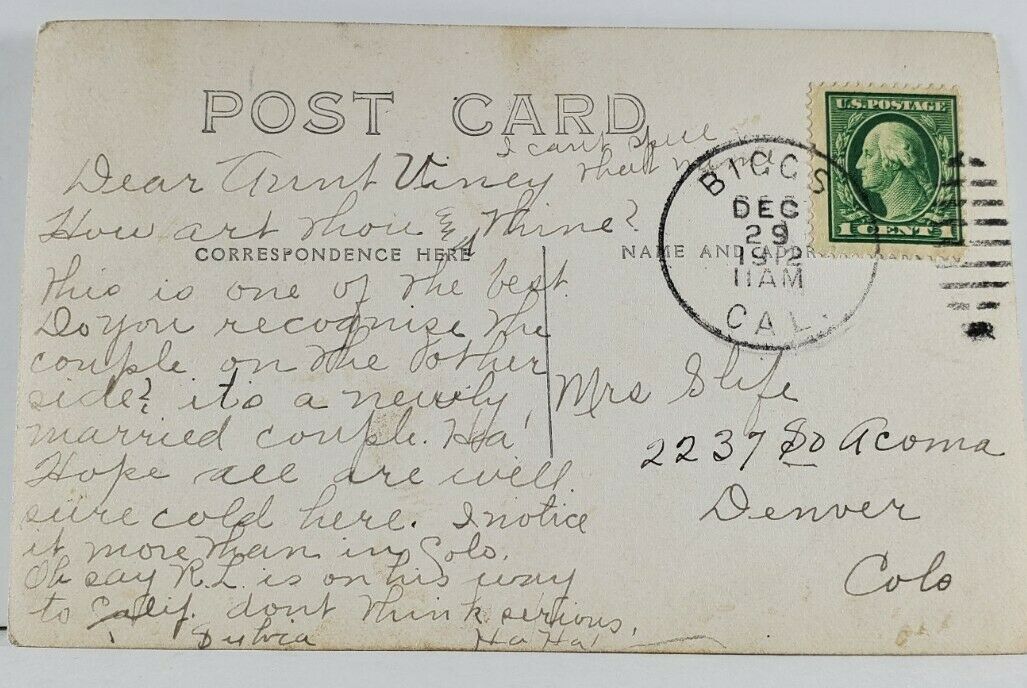 POST CARD
U.S. POSTAGE
1 CENT 1
BIGGS
DEC
29
1912
11 AM
CAL.
I can't spell
that name
Dear Aunt Viney
How art thou & thine?
CORRESPONDENCE HERE
NAME AND ADDR
This is one of the best.
Do you recognise the
couple on the other
side? it's a newly
married couple. Ha!
Hope all are well.
sure cold here. I notice
it more than in Colo.
Oh say R.L. is on his way
to Calif. dont think serious,
Sylvia Ha Ha!
Mrs Slife
2237 So Acoma
Denver
Colo